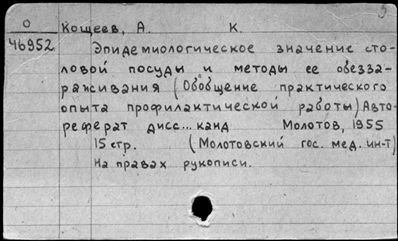 5
О Кощеев, А. К.
46952
Эпидемиологическое значение сто-
ловой посуды и методы ее обезза-
раживания (Обобщение практического
опыта профилактической работы) Авто-
реферат дисс... канд Молотов, 1955
15 стр. (Молотовский гос. мед. ин-т)
На правах рукописи.